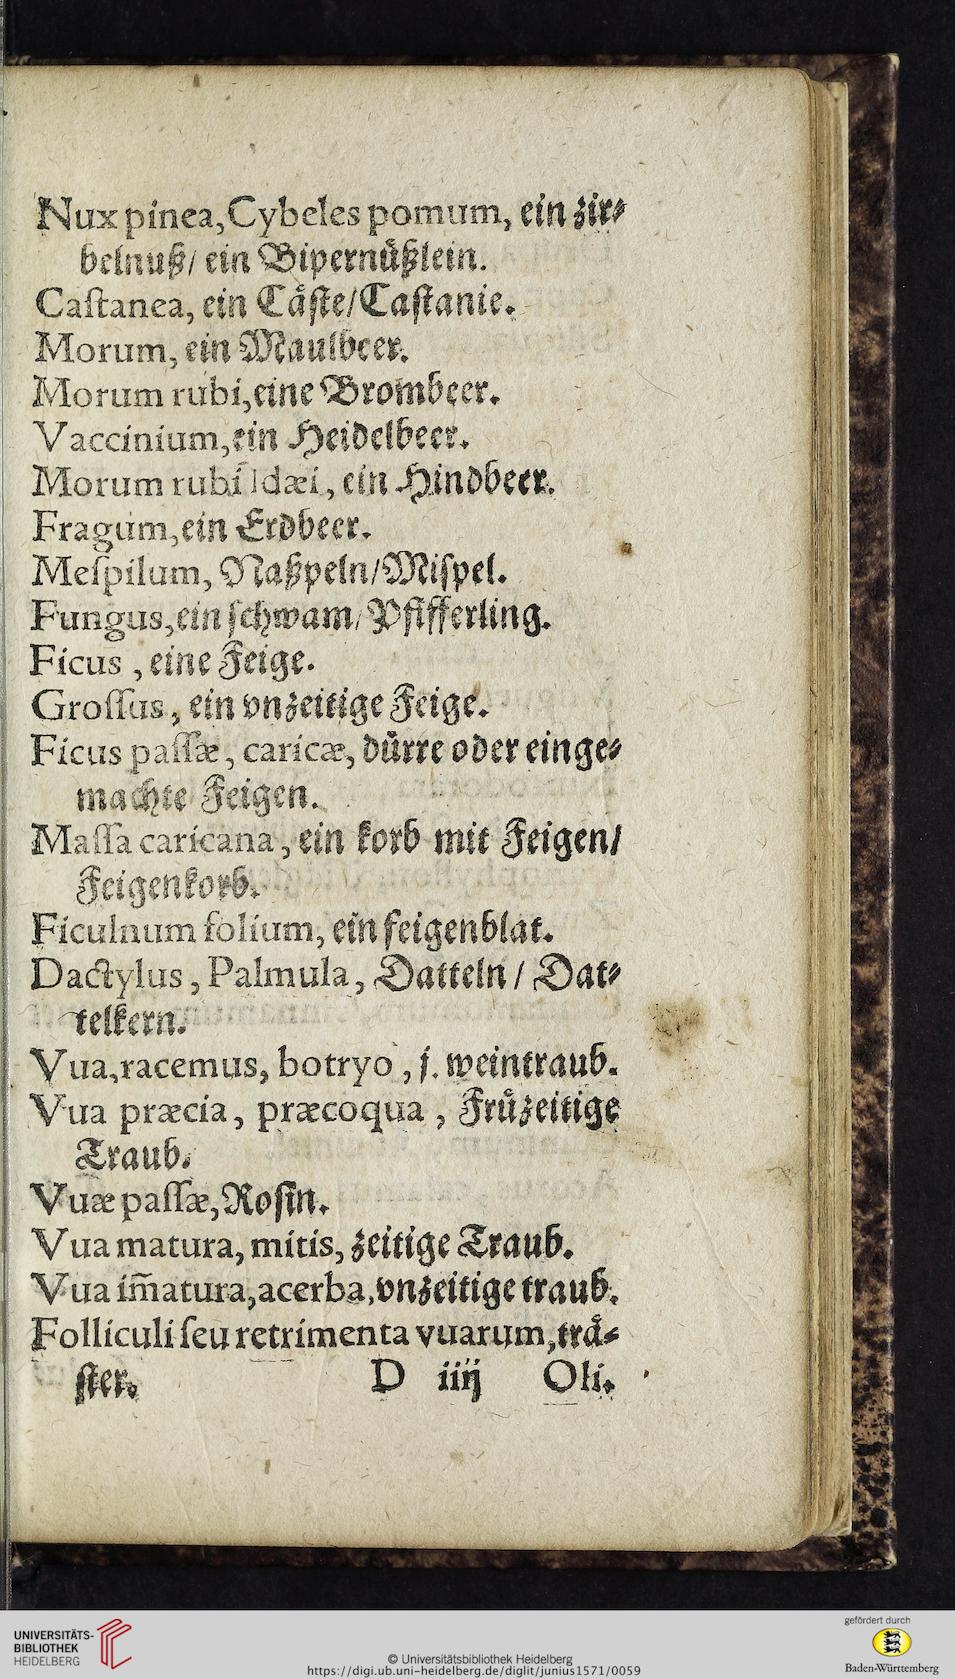 Nux pinea, Cybeles pomum, ein zir⸗
belnuß/ ein Bipernuͤßlein.
Caſtanea, ein Caͤſte/Caſtanie.
Morum, ein Maulbeer.
Morum rubi, eine Brombeer.
Vaccinium, ein Heidelbeer.
Morum rubi Idæi, ein Hindbeer.
Fragum, ein Erdbeer.
Meſpilum, Naßpeln/Miſpel.
Fungus, ein ſchwam/Pfifferling.
Ficus, eine Feige.
Groſſus, ein vnzeitige Feige.
Ficus paſſæ, caricæ, duͤrre oder einge⸗
machte Feigen.
Maſſa caricana, ein korb mit Feigen/
Feigenkorb.
Ficulnum folium, ein feigenblat.
Dactylus, Palmula, Datteln / Dat⸗
telkern.
Vua, racemus, botryo, j. weintraub.
Vua præcia, præcoqua, Fruͤzeitige
Traub.
Vuæ paſſæ, Roſin.
Vua matura, mitis, zeitige Traub.
Vua im̃atura, acerba, vnzeitige traub.
Folliculi ſeu retrimenta vuarum, traͤ⸗
ſter. D iiij Oli.
UNIVERSITÄTS-
BIBLIOTHEK
HEIDELBERG
© Universitätsbibliothek Heidelberg
https://digi.ub.uni-heidelberg.de/diglit/junius1571/0059
gefördert durch
Baden-Württemberg